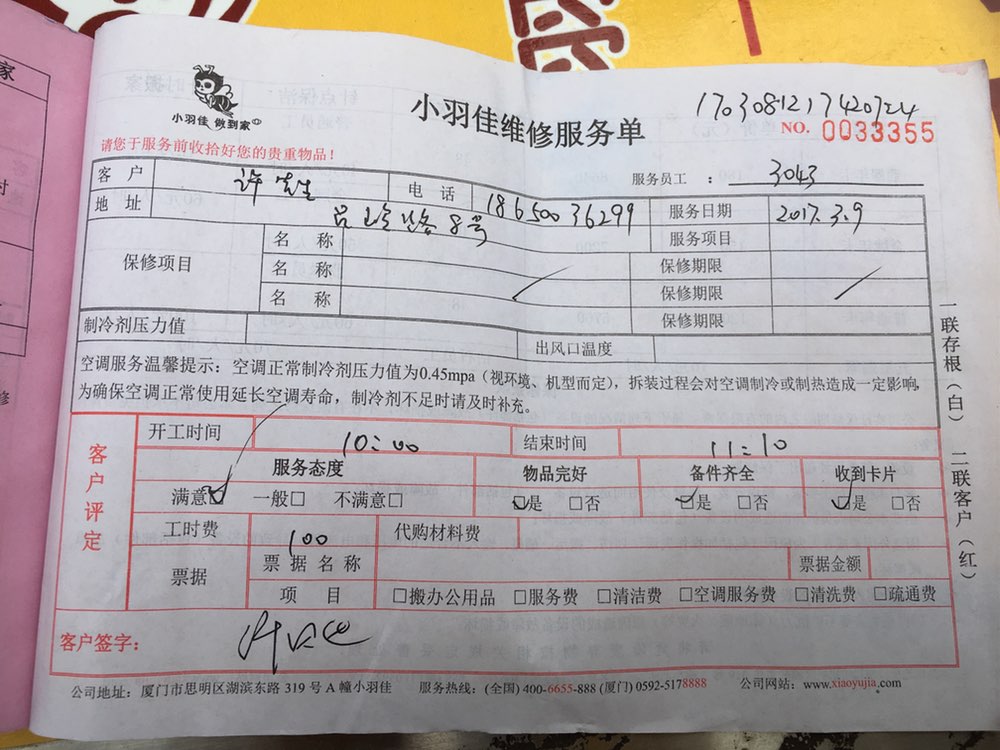 小羽佳 做到家
小羽佳维修服务单
1703081217420724
NO. 0033355
请您于服务前收拾好您的贵重物品！
服务员工 ： 3043
客 户 许先生 电 话 18650036299 服务日期 2017.3.9
地 址 路8号 服务项目
保修项目 名 称 保修期限
名 称 保修期限
名 称 保修期限
制冷剂压力值 出风口温度
空调服务温馨提示：空调正常制冷剂压力值为0.45mpa（视环境、机型而定），拆装过程会对空调制冷或制热造成一定影响，
为确保空调正常使用延长空调寿命，制冷剂不足时请及时补充。
一联存根（白） 二联客户（红）
客户评定
开工时间 10:00 结束时间 11:10
服务态度 物品完好 备件齐全 收到卡片
满意☑ 一般□ 不满意□ ☑是 □否 ☑是 □否 ☑是 □否
工时费 100 代购材料费
票据 票 据 名 称 票据金额
项 目 □搬办公用品 □服务费 □清洁费 □空调服务费 □清洗费 □疏通费
客户签字：
公司地址：厦门市思明区湖滨东路 319 号 A 幢小羽佳 服务热线：(全国) 400-6655-888 (厦门) 0592-5178888 公司网站：www.xiaoyujia.com